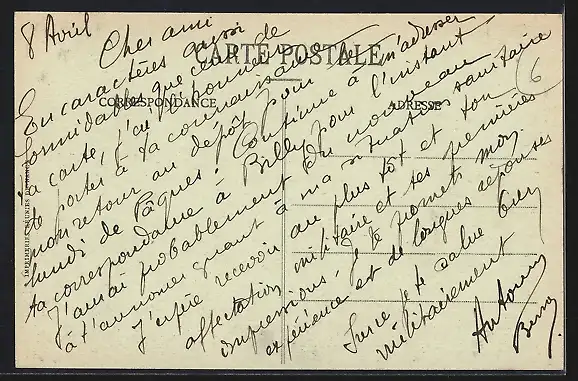 8 Avril
CARTE POSTALE
CORRESPONDANCE
ADRESSE
Cher ami
En caractères aussi
formidables que ceux de
la carte, j'ai l'honneur
de porter à ta connaissance
mon retour au dépôt pour le
lundi de Pâques. Continue à m'adresser
ta correspondance à Billy pour l'instant
J'aurai probablement du nouveau
à t'annoncer quant à ma situation sanitaire
J'espère recevoir au plus tôt et ton
affectation militaire et tes premières
impressions. Je te promets mon
expérience et de longues réponses
Sur ce je te salue bien
militairement
Antonin
6